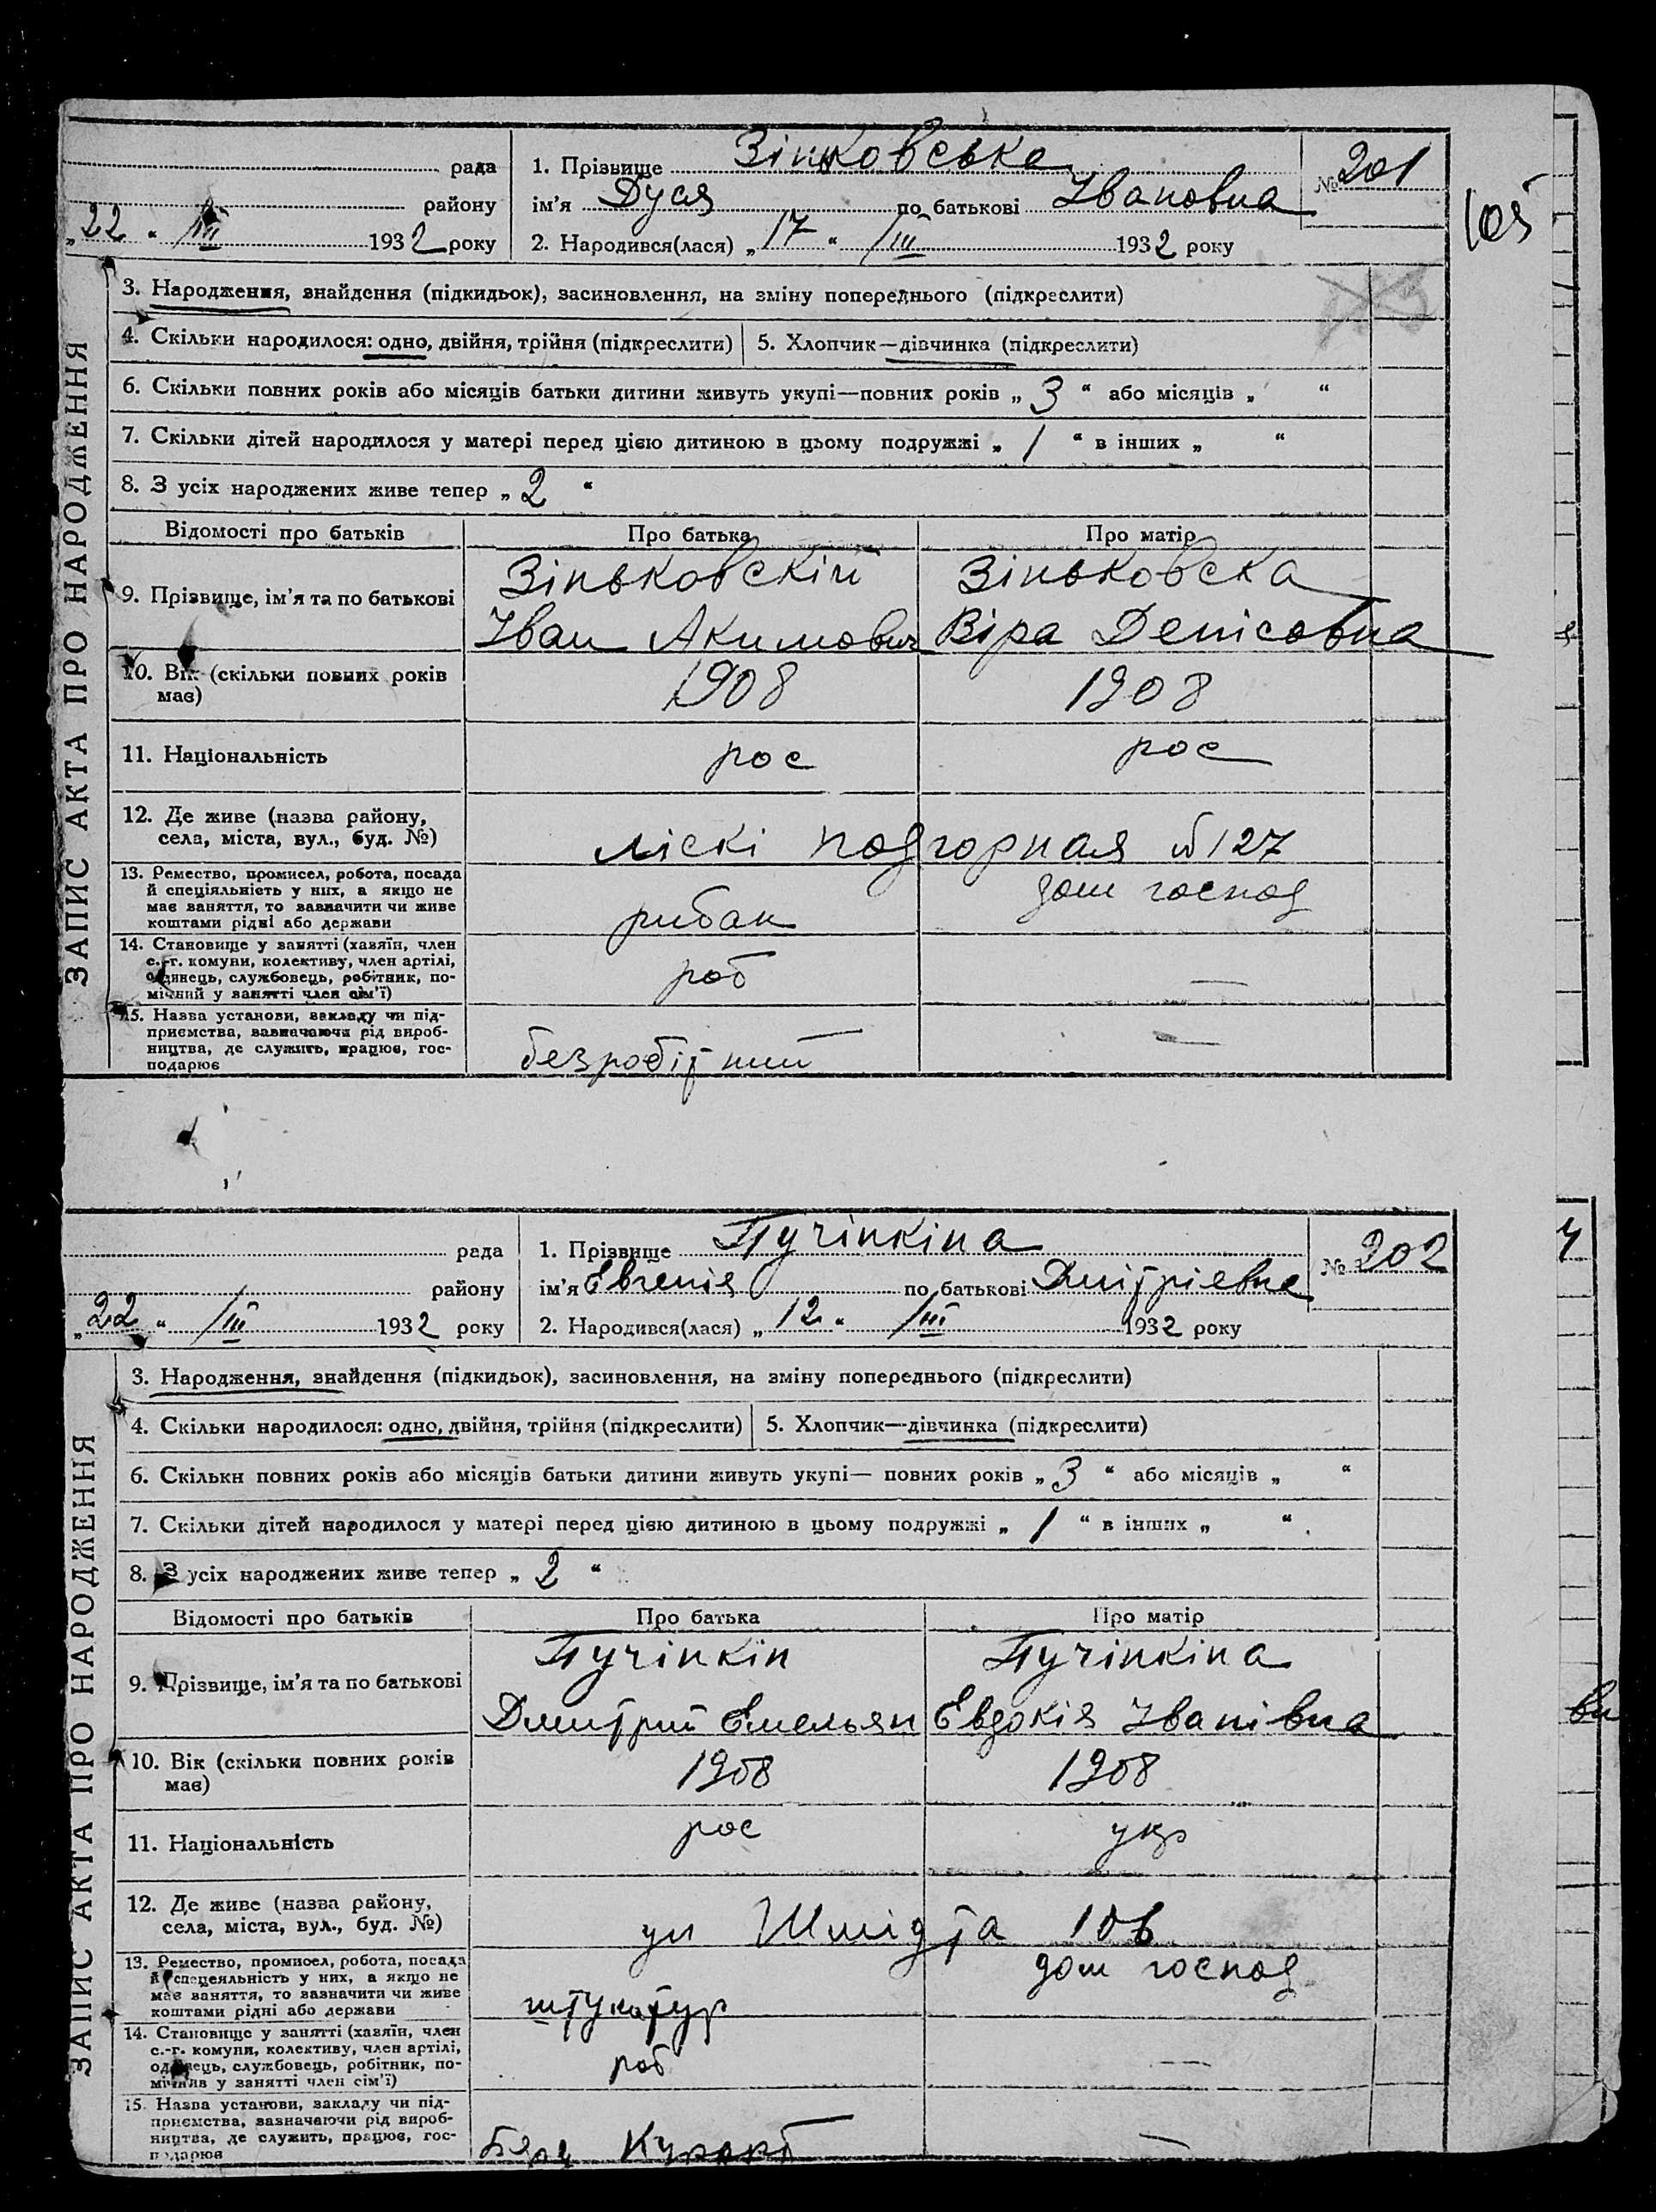 рада
району
„22“ /III 1932 року
1. Прізвище Зіньковська
ім'я Дуся по батькові Івановна
2. Народився(лася) „17“ /III 1932 року
№ 201
105
ЗАПИС АКТА ПРО НАРОДЖЕННЯ
3. Народження, знайдення (підкидьок), засиновлення, на зміну попереднього (підкреслити)
4. Скільки народилося: одно, двійня, трійня (підкреслити) 5. Хлопчик—дівчинка (підкреслити)
6. Скільки повних років або місяців батьки дитини живуть укупі—повних років „3“ або місяців „ “
7. Скільки дітей народилося у матері перед цією дитиною в цьому подружжі „1“ в інших „ “
8. З усіх народжених живе тепер „2“
Відомості про батьків Про батька Про матір
9. Прізвище, ім'я та по батькові
Зіньковскій
Іван Акимович
Зіньковска
Віра Денісовна
10. Вік (скільки повних років
має)
1908 1908
11. Національність рос рос
12. Де живе (назва району,
села, міста, вул., буд. №)
ліскі подгорная №127
13. Ремество, промисел, робота, посада
й спеціяльність у них, а якщо не
має заняття, то зазначити чи живе
коштами рідні або держави
рибак
дом господ
14. Становище у занятті (хазяїн, член
с.-г. комуни, колективу, член артілі,
одинець, службовець, робітник, по-
мічний у занятті член сім'ї)
роб —
15. Назва установи, закладу чи під-
приємства, зазначаючи рід вироб-
ництва, де служить, працює, гос-
подарює
безробітний —
рада
району
„22“ /III 1932 року
1. Прізвище Пучінкіна
ім'я Евгенія по батькові Дмітріевна
2. Народився(лася) „12“ /III 1932 року
№ 202
ЗАПИС АКТА ПРО НАРОДЖЕННЯ
3. Народження, знайдення (підкидьок), засиновлення, на зміну попереднього (підкреслити)
4. Скільки народилося: одно, двійня, трійня (підкреслити) 5. Хлопчик—дівчинка (підкреслити)
6. Скільки повних років або місяців батьки дитини живуть укупі— повних років „3“ або місяців „ “
7. Скільки дітей народилося у матері перед цією дитиною в цьому подружжі „1“ в інших „ “.
8. З усіх народжених живе тепер „2“
Відомості про батьків Про батька Про матір
9. Прізвище, ім'я та по батькові
Пучінкін
Дмитрий Емельян
Пучінкіна
Евдокія Іванівна
10. Вік (скільки повних років
має)
1908 1908
11. Національність рос укр
12. Де живе (назва району,
села, міста, вул., буд. №)
ул Шмідта 106
13. Ремество, промисел, робота, посада
й спецеяльність у них, а якщо не
має заняття, то зазначити чи живе
коштами рідні або держави
штукатур
дом господ
14. Становище у занятті (хазяїн, член
с.-г. комуни, колективу, член артілі,
одинець, службовець, робітник, по-
мічнив у занятті член сім'ї)
роб —
15. Назва установи, закладу чи під-
приємства, зазначаючи рід вироб-
ництва, де служить, працює, гос-
подарює
—